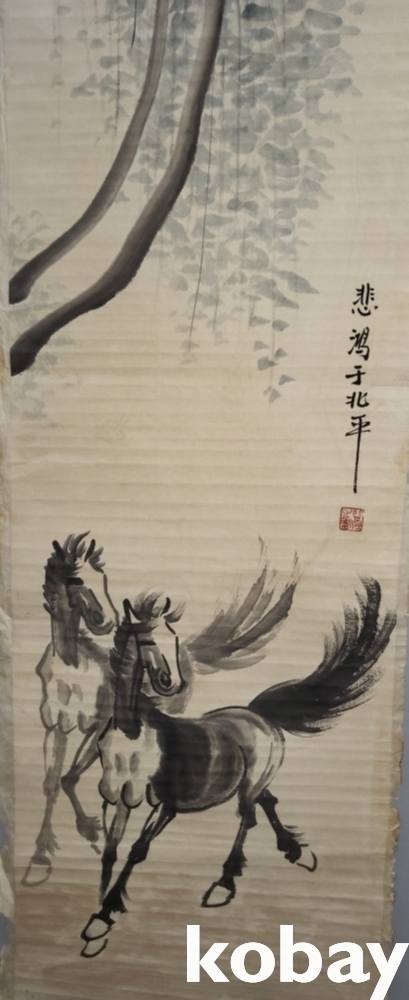 悲鸿于北平
kobay